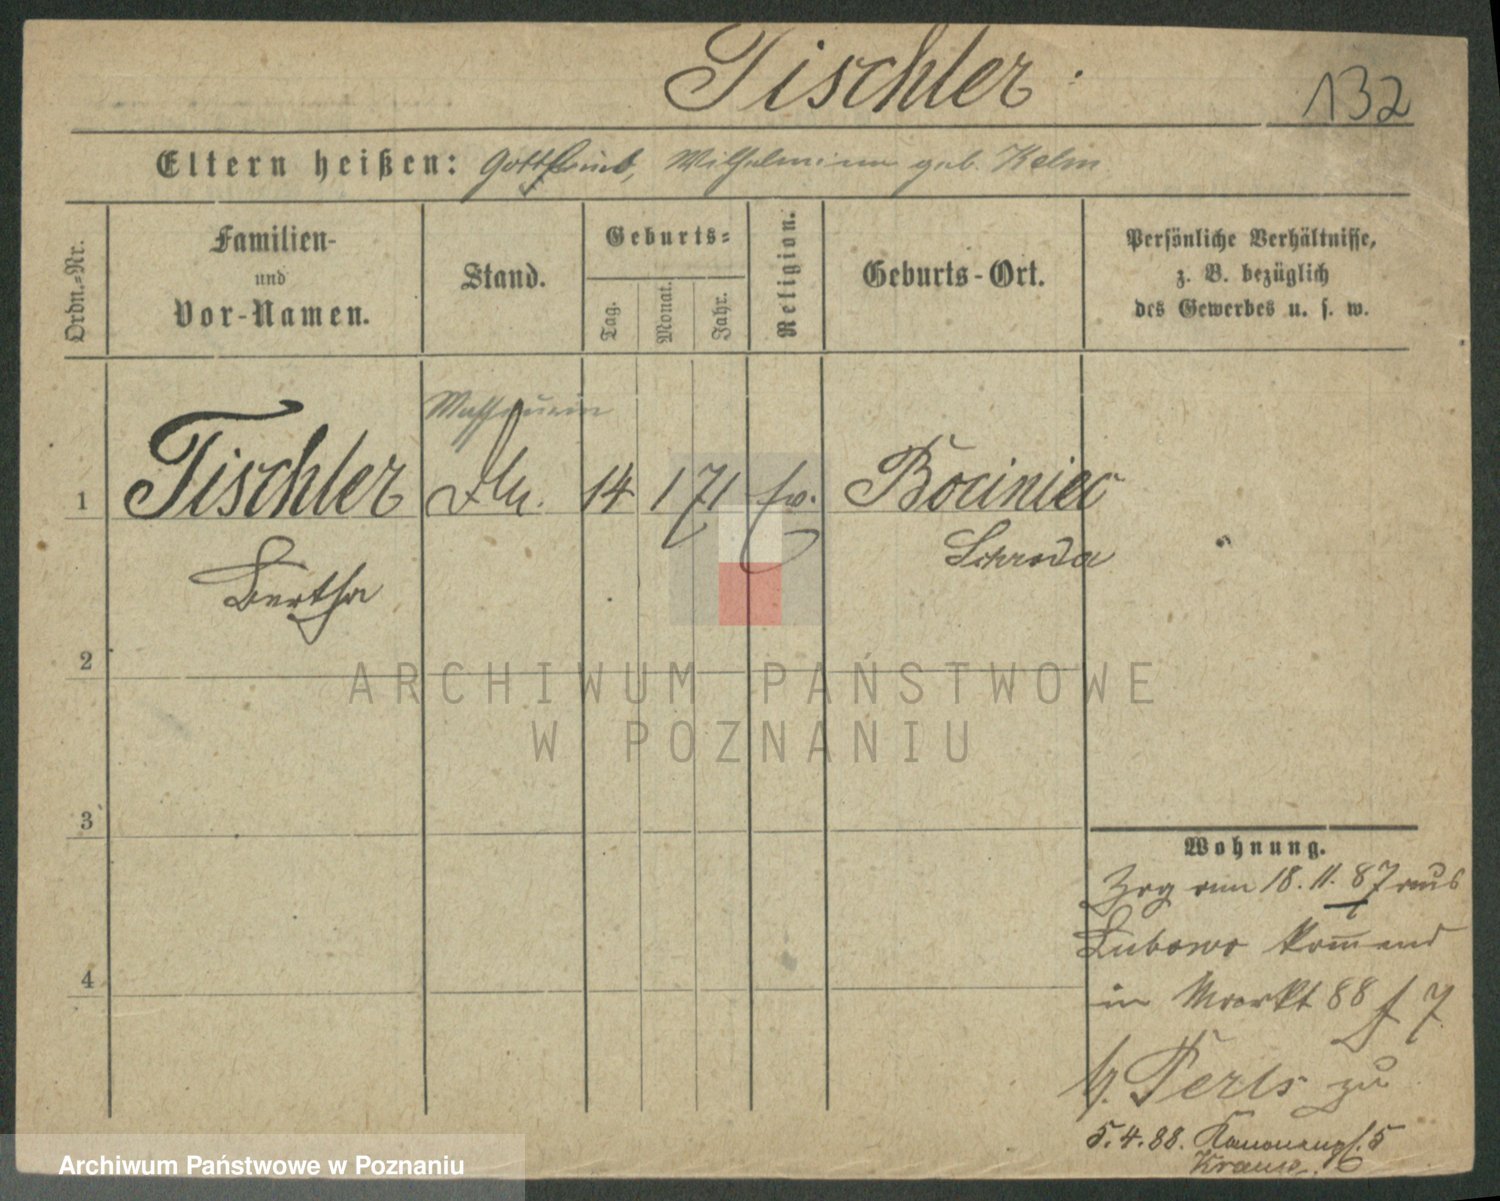 Tischler
132
Eltern heißen: Gottfried, Wilhelmine geb. Kelm
Ordn.-Nr.
Familien-
und
Vor-Namen.
Stand.
Geburts-
Tag.
Monat.
Jahr.
Religion.
Geburts-Ort.
Persönliche Verhältnisse,
z. B. bezüglich
des Gewerbes u. s. w.
1 Tischler 14 1 71 ev. Bociniec
Bertha Schroda
2
3
4
Wohnung.
Zzg am 18. 11. 87 aus
Lubowo kommend
in Markt 88 f 7
b. Perls zu
5.4.88. Kanonenpl. 5
Krause
ARCHIWUM PAŃSTWOWE
W POZNANIU
Archiwum Państwowe w Poznaniu